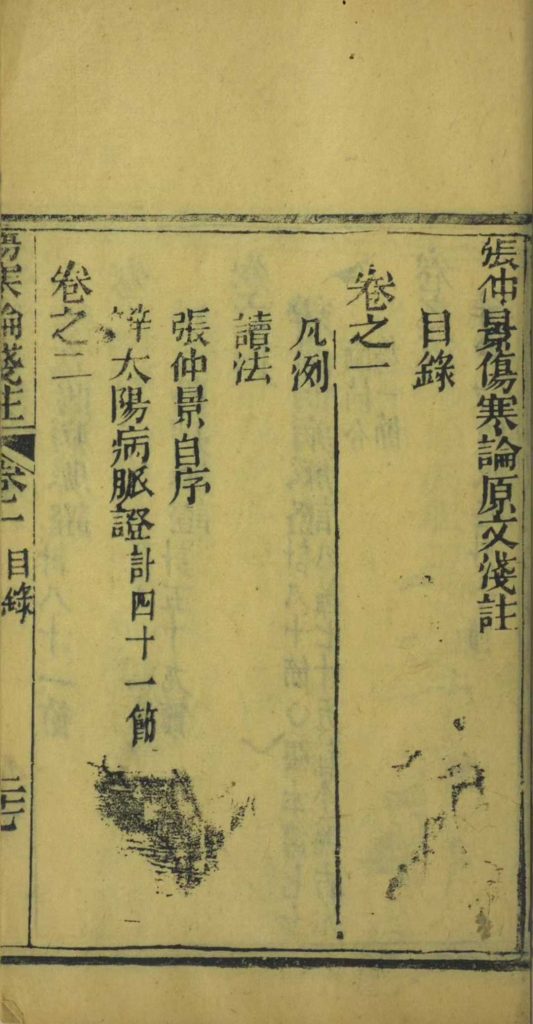 張仲景傷寒論原文淺註
目錄
卷之一
凡例
讀法
張仲景自序
辛太陽病脈證計四十一節
卷之二
傷寒論淺註 卷一 目錄